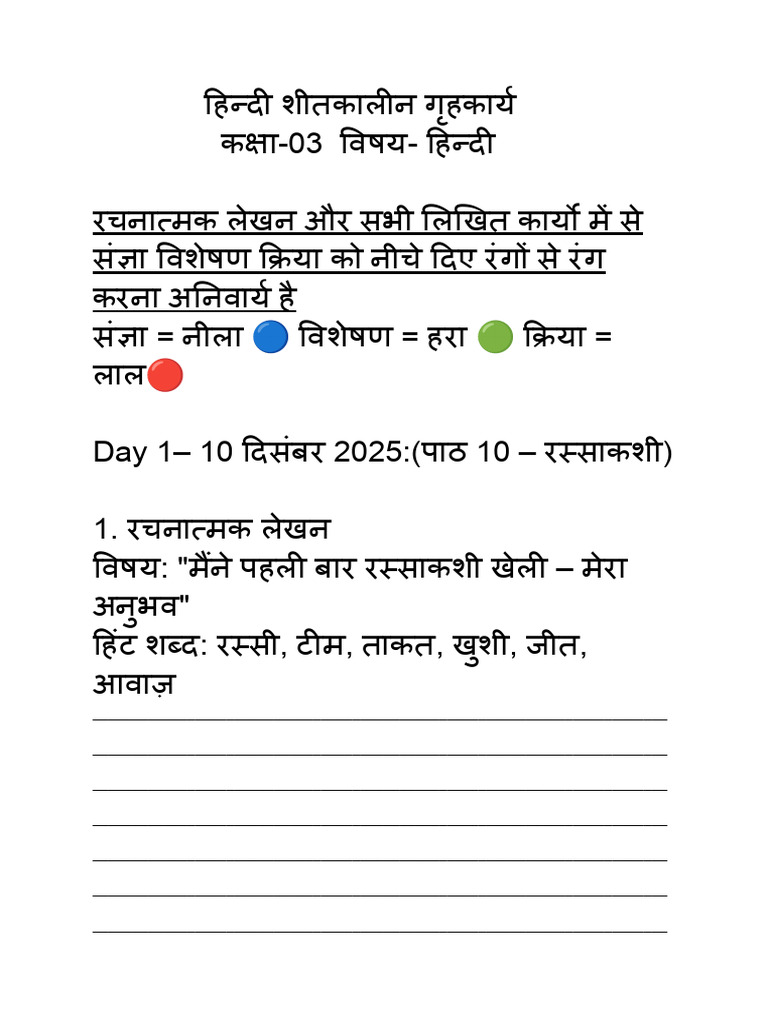 हिन्दी शीतकालीन गृहकार्य
कक्षा-03 विषय- हिन्दी
रचनात्मक लेखन और सभी लिखित कार्यो में से
संज्ञा विशेषण क्रिया को नीचे दिए रंगों से रंग
करना अनिवार्य है
संज्ञा = नीला 🔵 विशेषण = हरा 🟢 क्रिया =
लाल🔴
Day 1– 10 दिसंबर 2025:(पाठ 10 – रस्साकशी)
1. रचनात्मक लेखन
विषय: "मैंने पहली बार रस्साकशी खेली – मेरा
अनुभव"
हिंट शब्द: रस्सी, टीम, ताकत, खुशी, जीत,
आवाज़